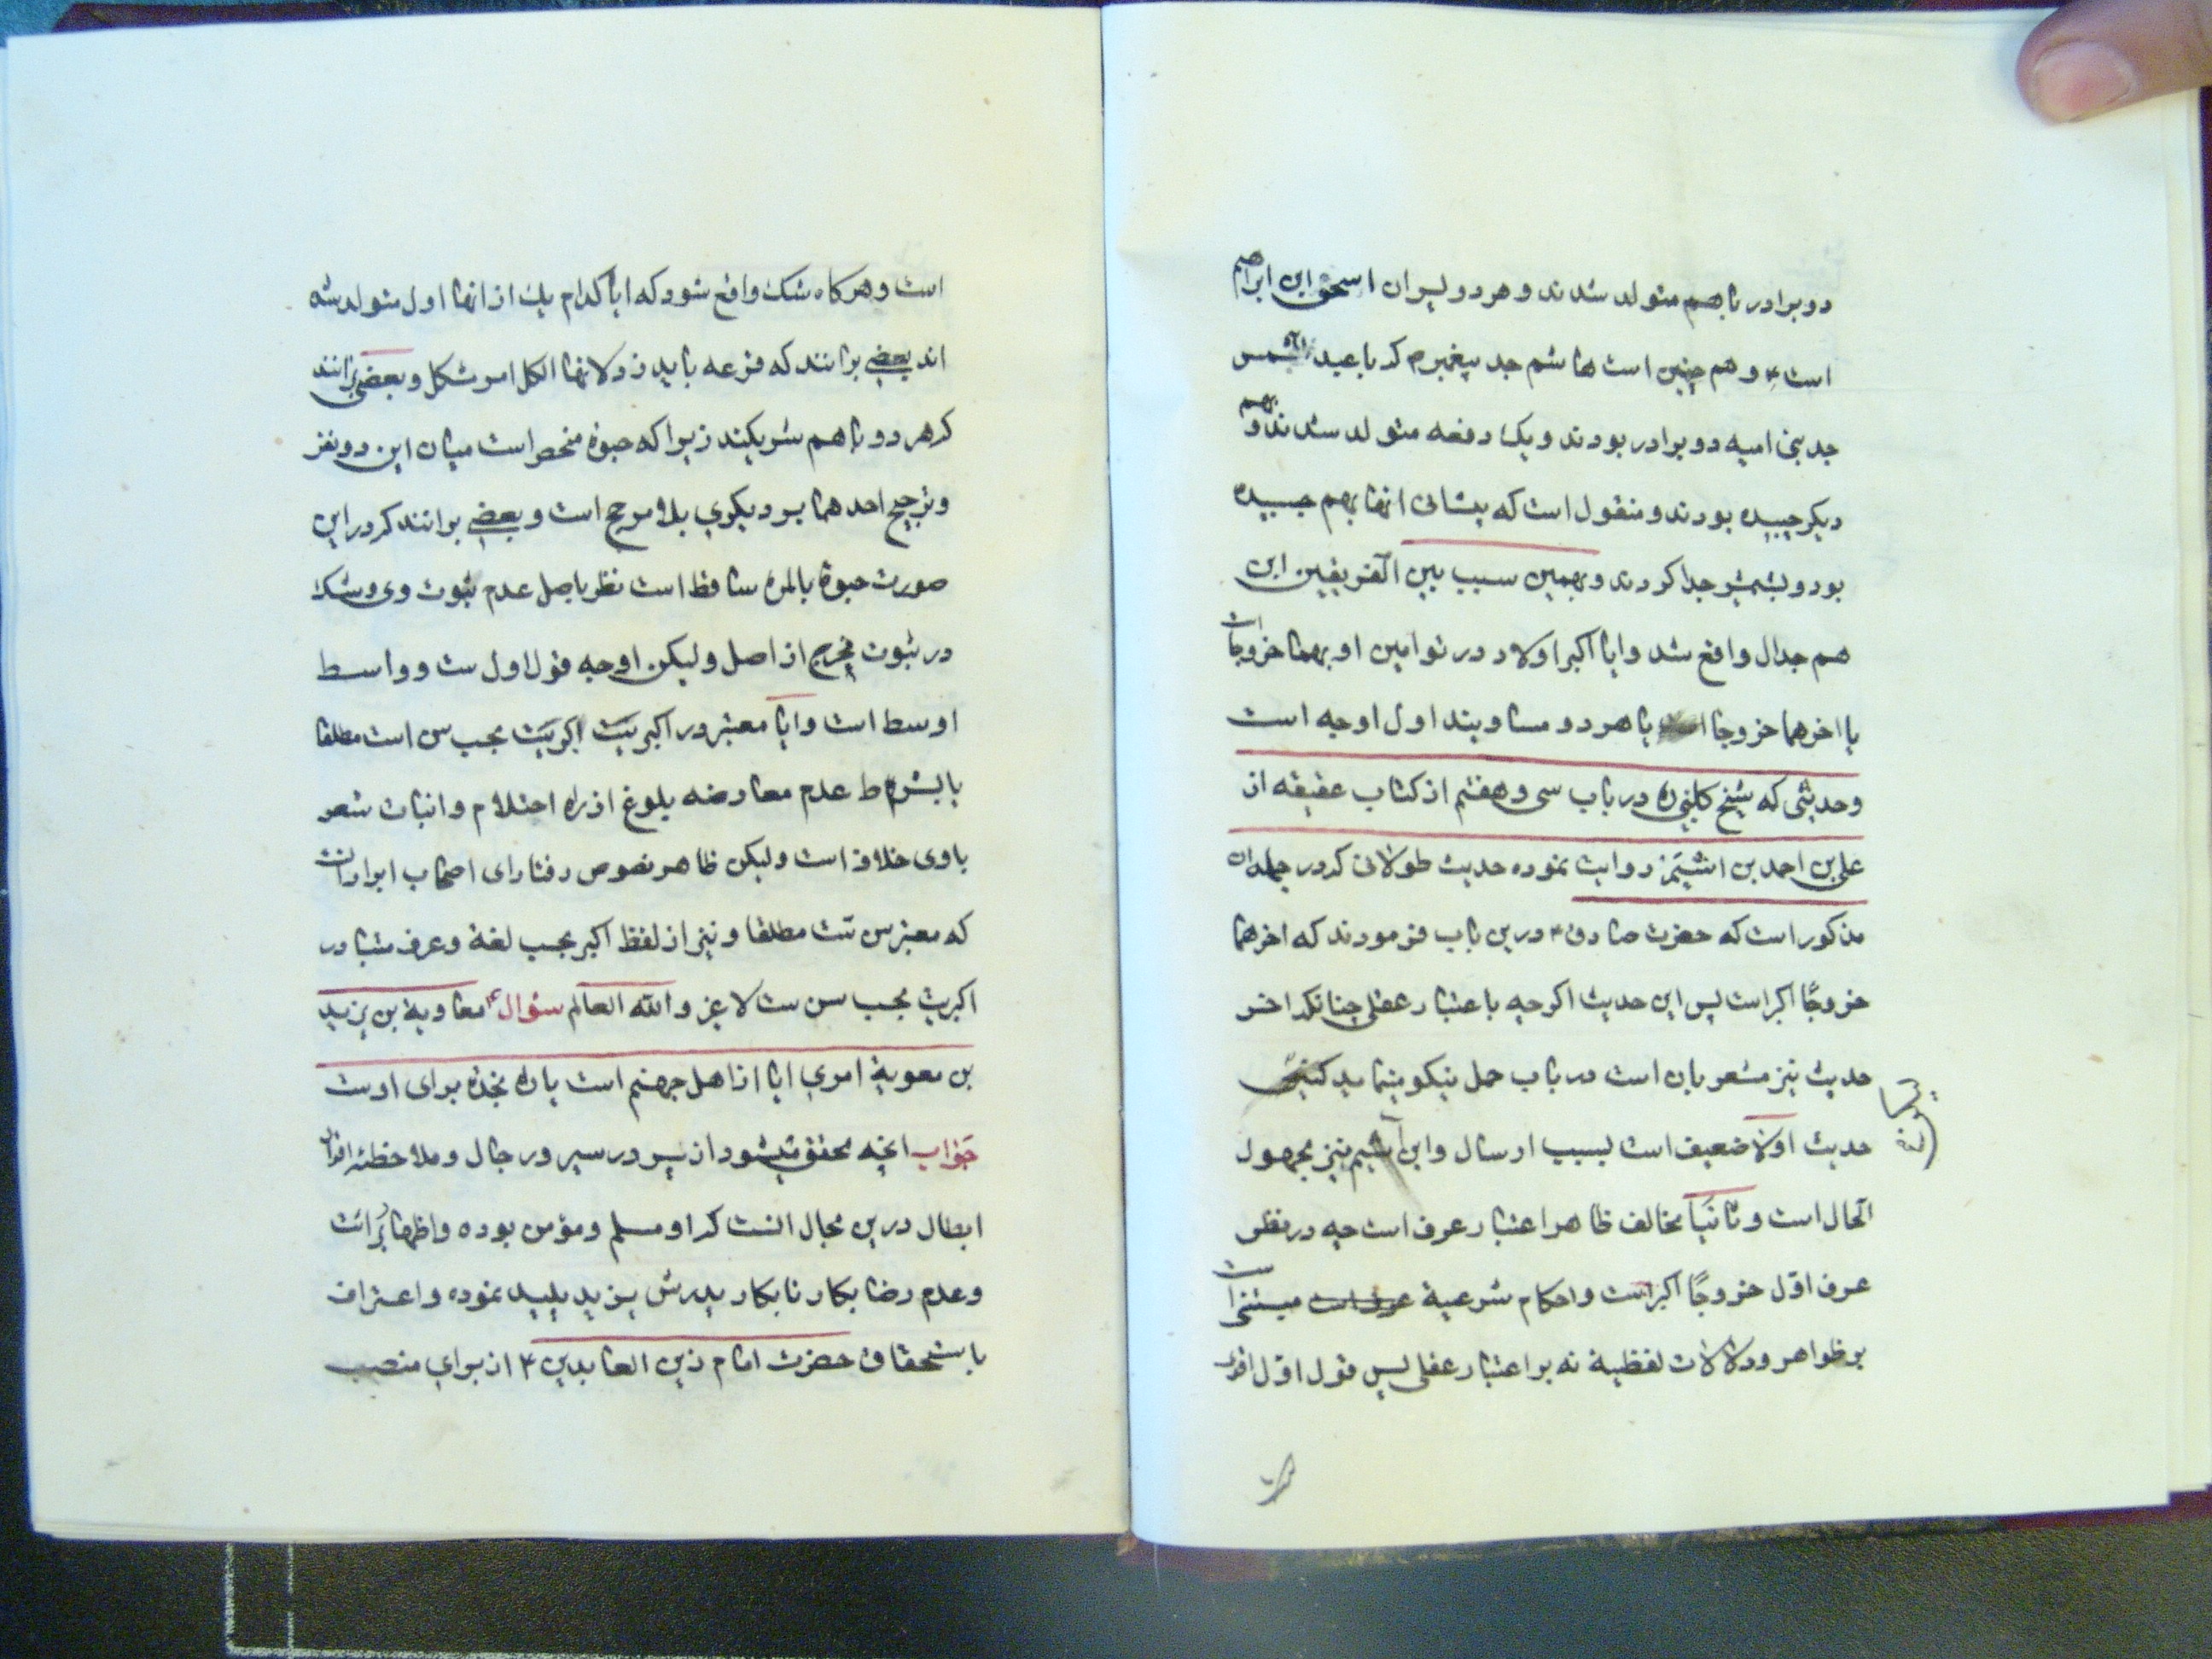 دو برادر باهم متولد شدند و هر دو پسران اسحق ابن ابراهیم
است ۴ و هم چنین است هاشم جد پیغمبر م که با عبد الشمس
جد بنی امیه دو برادر بودند و یک دفعه متولد شدند و بهم
دیکر چسبیده بودند و منقول است که پیشانی انها بهم چسبیده
بود و بشمشیر جدا کردند و بهمین سبب بین الفریقین این
هم جدال واقع شد و ایا اکبر اولاد در توامین اولهما خروجا است
یا اخرهما خروجا یا هر دو مساویند اول اوجه است
و حدیثی که شیخ کلینی ره در باب سی و هفتم از کتاب عقیقه از
علی بن احمد بن اشیم روایت نموده حدیث طولانی که در جمله ان
مذکور است که حضرت صادق ۴ درین باب فرمودند که اخرهما
خروجًا اکبر است پس این حدیث اکرچه باعتبار عقلی چنانکه اخر
حدیث نیز مشعر بان است در باب حمل نیکو مینماید
حدیث اولا ضعیف است بسبب ارسال و ابن اشیم نیز مجهول
الحال است و ثانیًا مخالف ظاهر اعتبار عرف است چه در نظر
عرف اوّل خروجًا اکبر است و احکام شرعیة مبتنی است
بر ظواهر و دلالات لفظیة نه بر اعتبار عقلی پس قول اوّل اقوی
است و هر کاه شک واقع شود که ایا کدام یک از انها اول متولد شده
اند بعضی برانند که قرعه باید زد لانها لکل امر مشکل و بعضی برانند
که هر دو باهم شریکند زیرا که حبوة منحصر است میان این دو نفر
و ترجیح احدهما بر دیکری بلا مرجح است و بعضی برانند که در این
صورت حبوة بالمره ساقط است نظر باصل عدم ثبوت وی و شک
در ثبوت مخرج از اصل و لیکن اوجه قول اول ست و واسط
اوسط است و ایا معتبر در اکبریّت اکبریّت بحسب سن است مطلقا
یا بشرط عدم معارضه بلوغ از راه احتلام و انبات شعر
با وی خلاف است و لیکن ظاهر نصوص و فتاوای اصحاب ابرار انست
که معتبر سن ست مطلقا و نیز از لفظ اکبر بحسب لغة و عرف متبادر
اکبریت بحسب سن ست لا غیر و الله العالم سئوال معاویة بن یزید
بن معویة اموی ایا از اهل جهنم است یا راه نجاة برای اوست
جواب انچه محقق میشود از سیر در سیر و رجال و ملاحظه اقوال
ابطال درین مجال انست که او مسلم و مؤمن بوده و اظهار برائت
و عدم رضا بکار نابکار پدرش یزید پلید نموده و اعتراف
باستحقاق حضرت امام زین العابدین ۴ از برای منصب